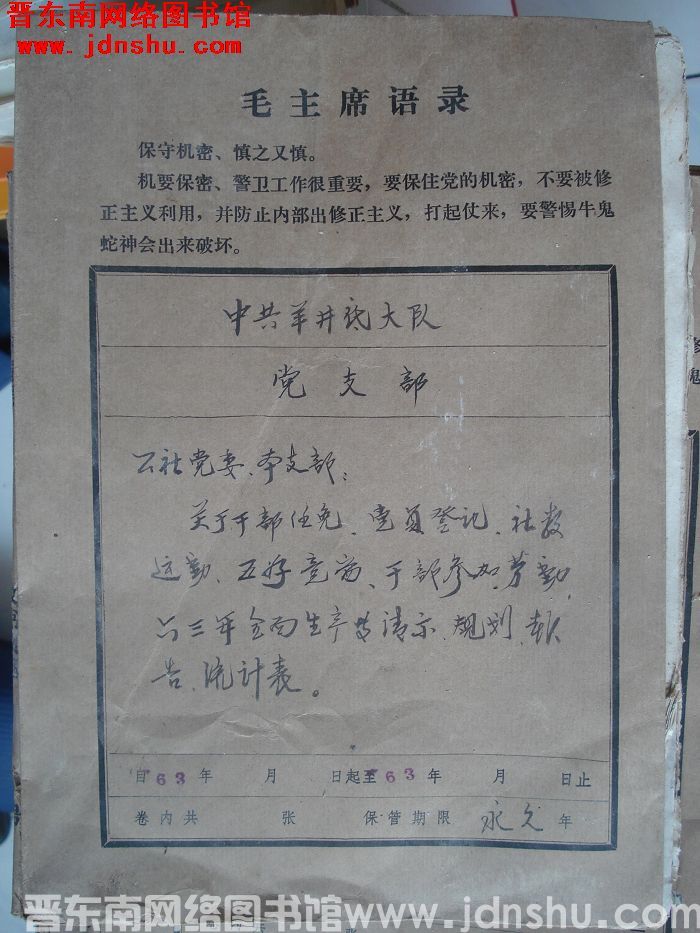 晋东南网络图书馆
www.jdnshu.com
毛主席语录
保守机密、慎之又慎。
机要保密、警卫工作很重要，要保住党的机密，不要被修
正主义利用，并防止内部出修正主义，打起仗来，要警惕牛鬼
蛇神会出来破坏。
中共羊井底大队
党支部
公社党委、本支部：
关于干部任免、党员登记、社教
运动、五好竞赛、干部参加劳动、
六三年全面生产等请示、规划、报
告、统计表。
自63年 月 日起至63年 月 日止
卷内共 张 保管期限 永久 年
晋东南网络图书馆 www.jdnshu.com